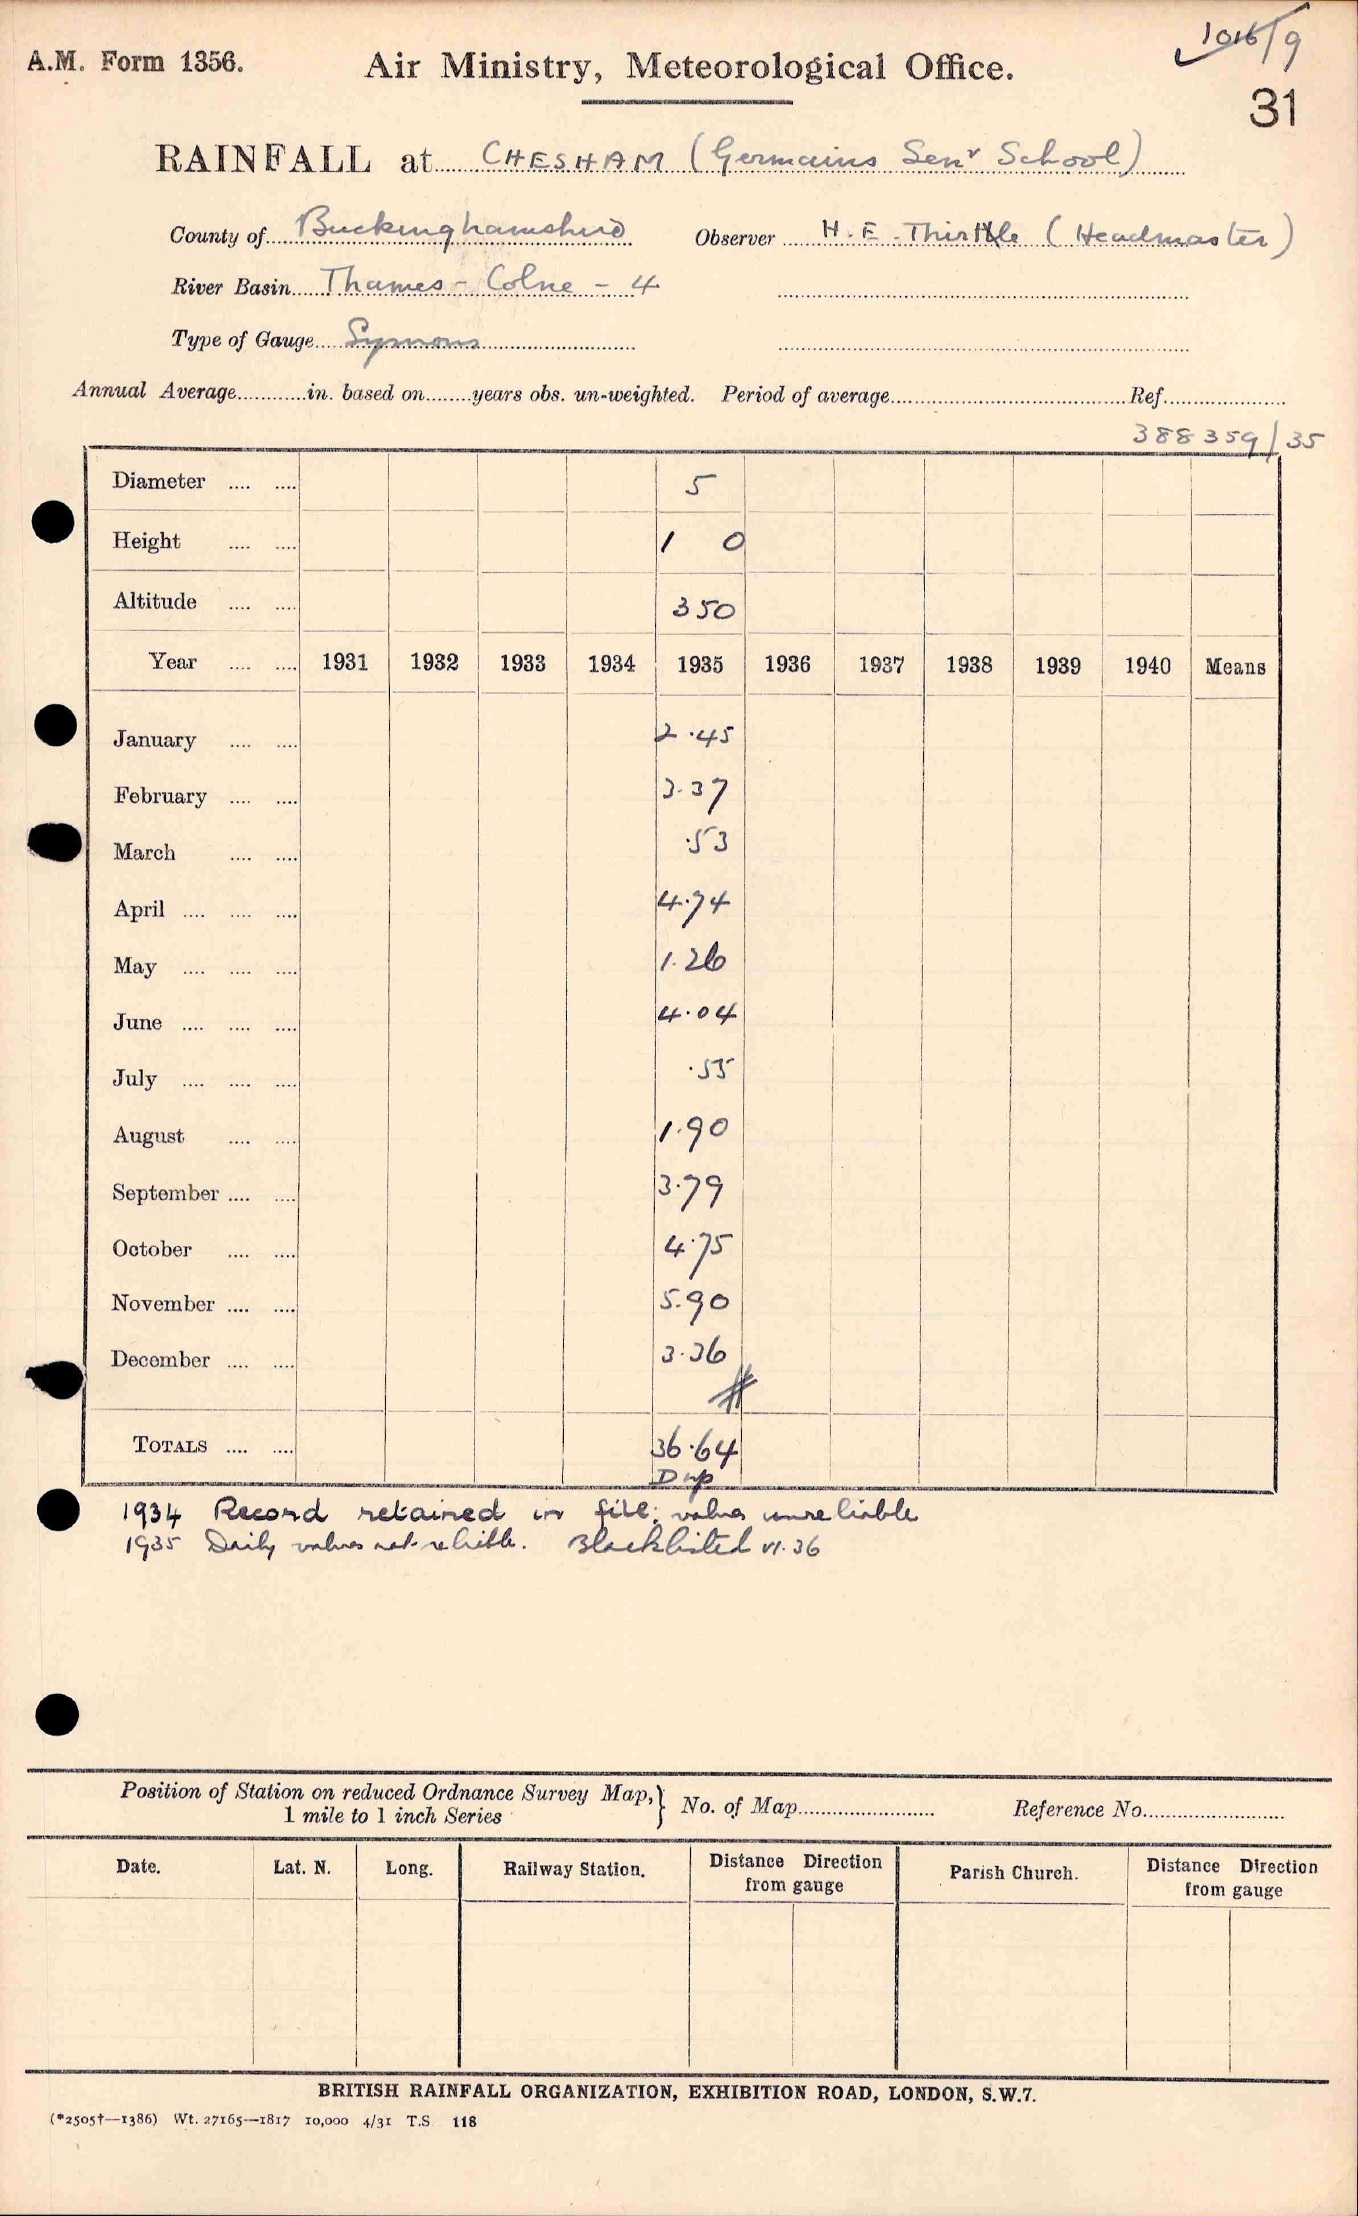 1016/9
A.M. Form 1356.
Air Ministry, Meteorological Office.
31
RAINFALL at CHESHAM (Germains Senr School)
County of Buckinghamshire Observer H. E. Thirtle (Headmaster)
River Basin Thames - Colne - 4
Type of Gauge Symons
Annual Average............in. based on........years obs. un-weighted. Period of average..............................Ref.....................
388359/35
Diameter .... .... 5
Height .... .... 1 0
Altitude .... .... 350
Year .... .... 1931 1932 1933 1934 1935 1936 1937 1938 1939 1940 Means
January .... .... 2.45
February .... .... 3.37
March .... .... .53
April .... .... .... 4.74
May .... .... .... 1.26
June .... .... .... 4.04
July .... .... .... .55
August .... .... 1.90
September .... .... 3.79
October .... .... 4.75
November .... .... 5.90
December .... .... 3.36
TOTALS .... .... 36.64
1934 Record retained in file; values unreliable
1935 Daily values not reliable. Blacklisted VI. 36
Position of Station on reduced Ordnance Survey Map,} No. of Map........................ Reference No.........................
1 mile to 1 inch Series
Date. Lat. N. Long. Railway Station. Distance Direction from gauge Parish Church. Distance Direction from gauge
BRITISH RAINFALL ORGANIZATION, EXHIBITION ROAD, LONDON, S.W.7.
(*2505†—1386) Wt. 27165—1817 10,000 4/31 T.S 118